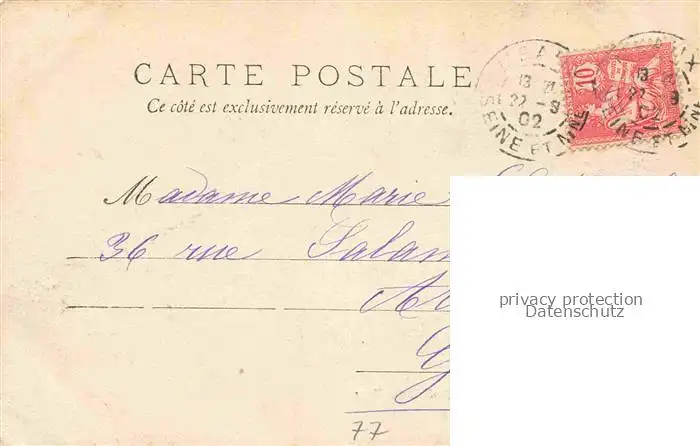 CARTE POSTALE
Ce côté est exclusivement réservé à l'adresse.
10
13
22 - 9
02
SEINE ET MNE
13
22 9
02
SEINE ET
Madame Marie
36 rue Salam
privacy protection
Datenschutz
77